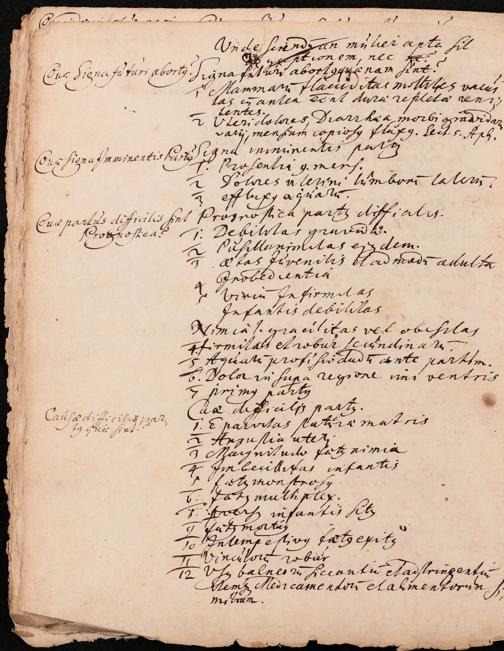 Unde sciend. an mulier apta sit
ptionem, nec
Quæ Signa futuri abortq?
Signa futuri abortq quænam sint?
1 Mammarū flacciditas
tas cū antea sint duræ repletæ reni
tentes.
2 Uteri dolores, Diarrhæa, morbi gravidar
varii, mensium copiosq fluxq. Sect. 5. Aph.
Quæ Signa imminentis Partq
Signa imminentis partq
1. Præsentia q. mens.
2 Dolores uterini lumborū laterū.
3 effluxq aquarū.
Quæ partus difficilis sint
Prognostica?
Prognostica partq difficilis.
1. Debilitas gravidæ.
2 Pusillanimitas ejusdem.
3 ætas juvenilis et admodū adulta
4 Inobedientia
5 Viriū Infirmitas
Infantis debilitas
Nimia gracilitas vel obesitas
4 firmitas et robur secundinarū
5 Aquarū profusio diu ante partum.
6. Dolor in supa regione imi ventris
7 primq partq
Causæ difficilis par
tq quæ sint?
Cau æ difficilis partq.
1. E parvitas staturæ matris
2 Angustia uteri
3 Magnitudo fœtq nimia
4 Imbecillitas infantis
5 fœtq monstrosq
6. fœtq multiplex.
infantis sitq
9 fœtq mortuq
10 Intempestivq fœtq exitq
11 Vinculorū robur
12 Usq balneorū siccantiū et adstringentiū
Item Medicamentorū et alimentorum